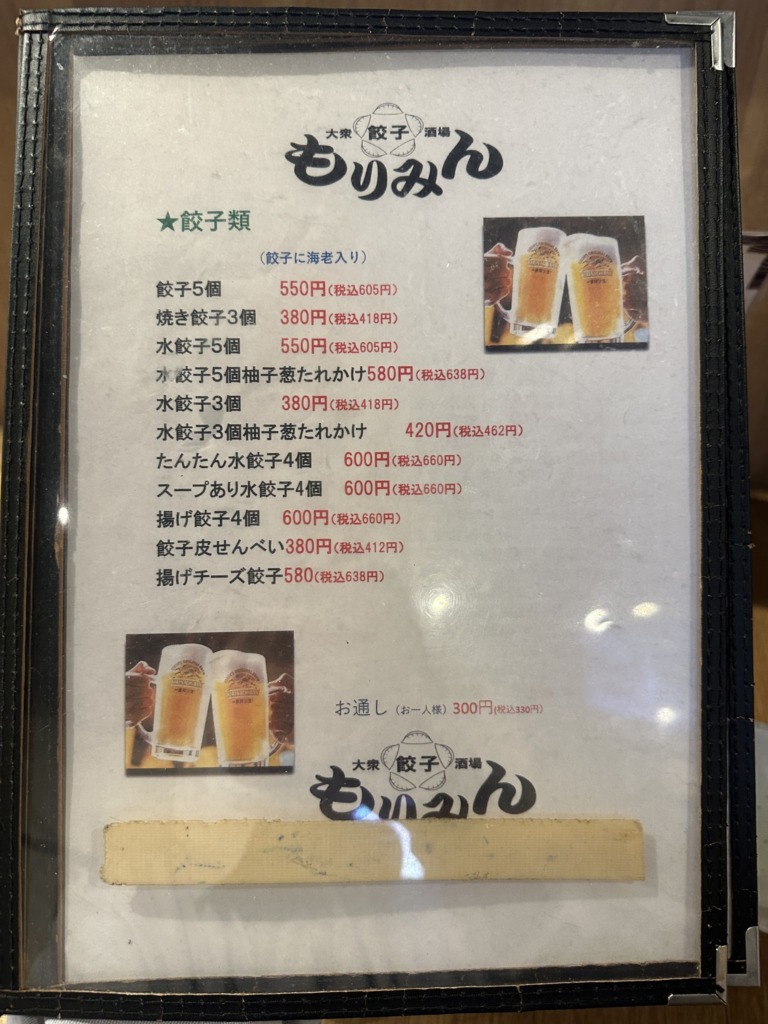 大衆 餃子 酒場
もりみん
★餃子類
(餃子に海老入り)
餃子5個 550円(税込605円)
焼き餃子3個 380円(税込418円)
水餃子5個 550円(税込605円)
水餃子5個柚子葱たれかけ580円(税込638円)
水餃子3個 380円(税込418円)
水餃子3個柚子葱たれかけ 420円(税込462円)
たんたん水餃子4個 600円(税込660円)
スープあり水餃子4個 600円(税込660円)
揚げ餃子4個 600円(税込660円)
餃子皮せんべい380円(税込412円)
揚げチーズ餃子580(税込638円)
お通し(お一人様)300円(税込330円)
大衆 餃子 酒場
もりみん